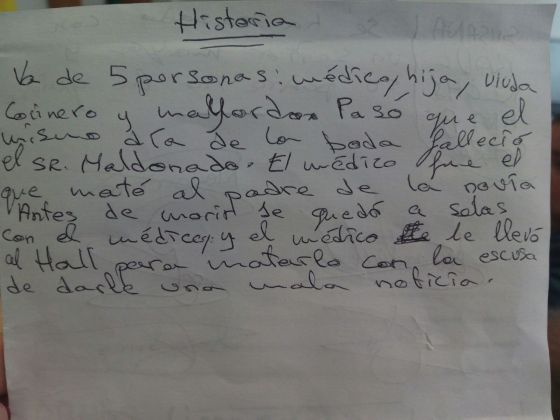 Historia
Va de 5 personas: médico, hija, viuda
cocinero y mallordo. Pasó que el
mismo día de la boda falleció
el SR. Maldonado. El médico fue el
que mató al padre de la novia
Antes de morir se quedó a solas
con el médico; y el médico le llevó
al Hall para matarlo con la escusa
de darle una mala noticia.